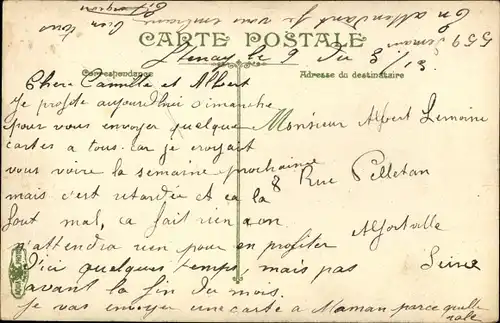 CARTE POSTALE
Stenay le 9 du 3/13
Correspondance
Adresse du destinataire
Chere Camilla et Albert
Je profite aujourd'hui Dimanche
pour vous envoyer quelque
cartes a tous car je croyait
vous voire la semaine prochaine
mais c'est retardée et ca la
fout mal, ca fait rien on
n'attendra rien pour en profiter
d'ici quelques temps, mais pas
avant la fin du mois.
Je vas envoyer une carte a Maman parce quelle
rale
Monsieur Albert Lemoine
8 Rue Pelletan
Alfortville
Seine
559 demain
En attendant je vous embrasse
bien tous